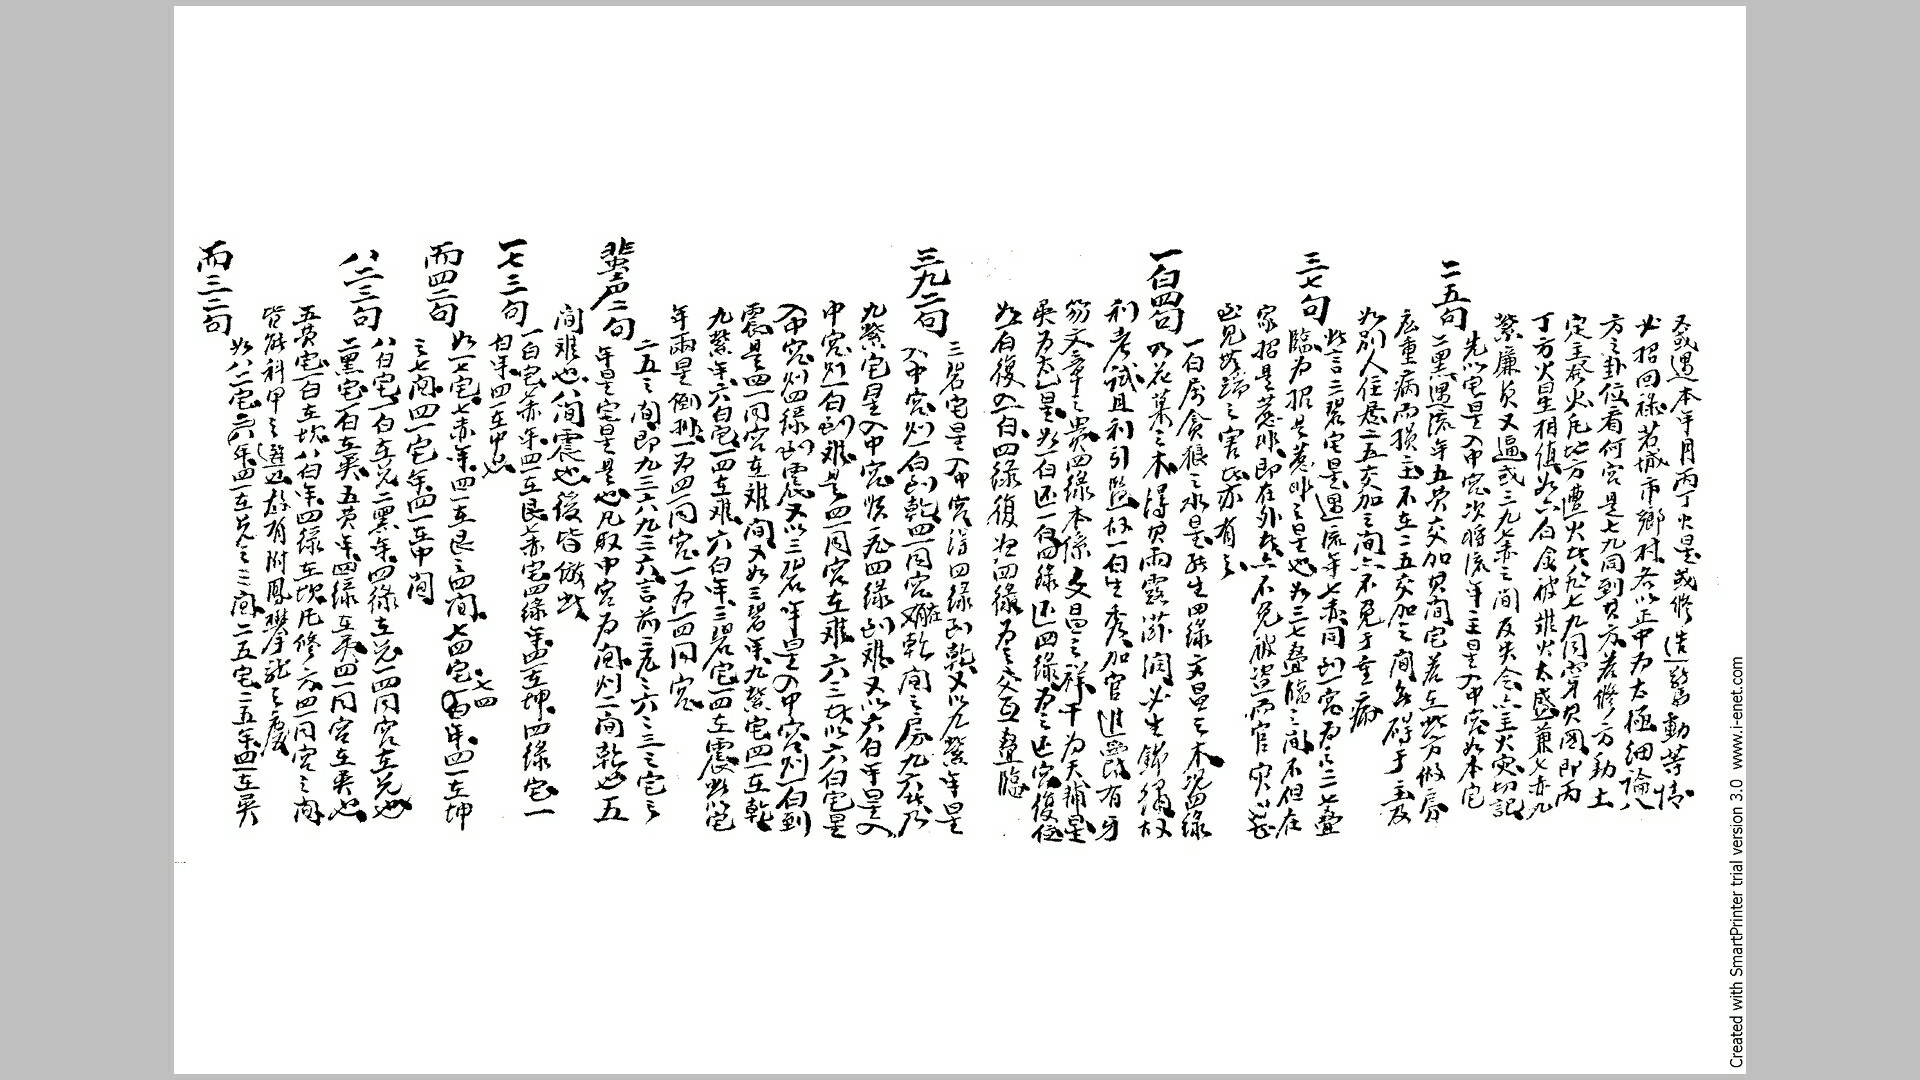 又或遇本年月丙丁火星或修造驚動等情
必招回祿若城市鄉村名以正中為太極細論八
方之卦位看何宮是七九同到其方若修方動土
定主發火凡比方遭火
丁方火星相值如六白宅被離火太盛兼七赤九
紫廉貞又逼或二九七赤之間反失令亦主火灾切記
二五句
先以宅星入中宮次將流年主星入中宮如本宅
二黑遇流年五黄交加其間宅若在此方做房
応重病而損主不在二五交加之間無碍于主及
如別人住居二五交加之間亦不免于重病
三七句
此言三碧宅星遇流年七赤同到一宮為之三七叠
臨為招是惹非之星也如三七叠臨之間不但在
家招是惹非即在外亦不免被盜而官灾
一白四句
一白為貪狼之水星能生四綠文昌之木況四綠
乃花菓之木得其雨露滋潤必生錦繡故
利考試且利引監故一白生秀加官進爵有
文章之貴四綠本係文昌之祥干為天輔星
巽為如一白还一白四綠还四綠為之还宮復位
如一白復入一白四綠復加四綠為之交互叠臨
三九二句
三碧宅星入中宮得四綠到乾又以九紫年星
入中宮則一白到乾四一同宮在乾間之房九六
九紫宅星入中宮順飛四綠到離又以六白年星入
中宮則一白到離是四一同宮在離六三以六白宅星
入中宮則四綠到震又以三碧年星入中宮則一白到
震是四一同宮在離間又如三碧年九紫宅四一在乾
九紫年六白宅一四在離六白年三碧宅一四在震此以宅
年兩星倒排一為四一同宮一為一四同宮
蜚声二句
二五之間即九三六九三六言前三元之六三三宅之
年星宅星是也凡取中宮為間則一間乾也五
間離也八間震也後皆倣此
一七三句
一白宅七赤年四一在艮七赤宅四綠年四一在坤四綠宅一
白年四一在中也
而四二句
如一七宅七赤年四一在艮之四間七四宅七四年四一在坤
之七間四一宅年四一在中間
八二三句
八白宅一白在兑二黑年四綠在兑一四同宮在兑也
二黑宅一白在巽五黄年四綠在巽四一同宮在巽也
五黄宅一白在坎八白年四綠在坎凡修六四一同宮之間
皆能科甲之選也故有附鳳攀龍之慶
而三二句
如八二宅二六年四一在兑之三間二五宅二五年四一在巽
Created with SmartPrinter trial version 3.0 www.i-enet.com